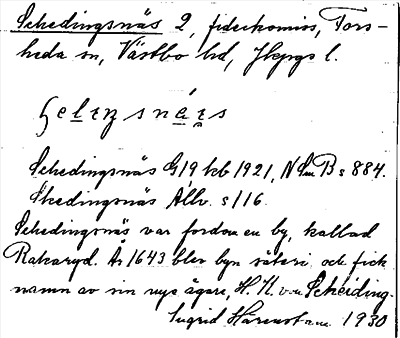 Schedingsnäs 2, fideikomiss, Fors-
heda sn, Västbo hd, Jkpgs l.
Schedingsnäs G19 kb 1921, NSmB s 884.
Skedingsnäs Allv. s 116.
Schedingsnäs var fordom en by, kallad
Rakaryd. År 1643 blev byn säteri och fick
namn av sin nye ägare, H. H. von Scheiding.
Ingrid Härenstam 1930